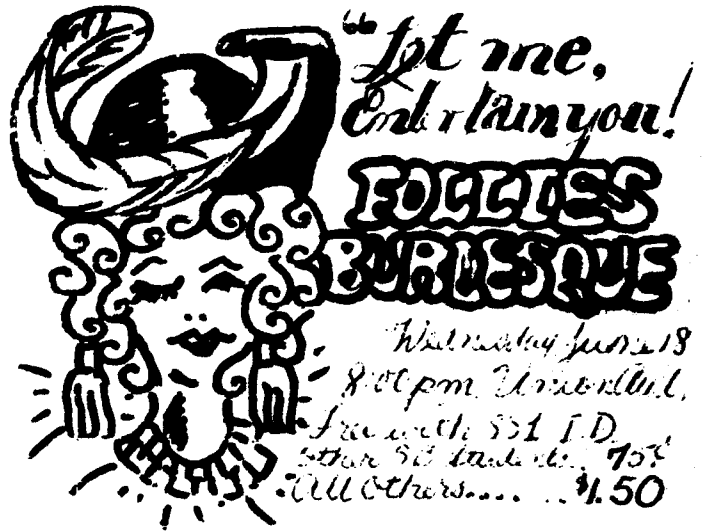 "Let me,
Entertain you!
FOLLIES
BURLESQUE
Wednesday June 18
8:00pm Union Aud.
Free with SSI I.D.
other SU students.. 75¢
All Others..... ..$1.50